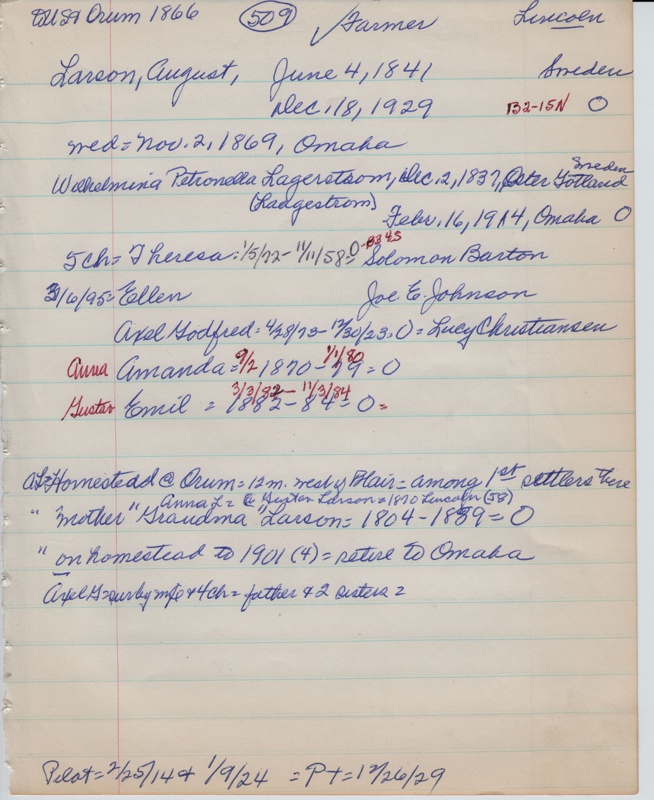 Orum 1866 509 ✓Farmer Lincoln
Larson, August, June 4, 1841 Sweden
Dec. 18, 1929 B2-15N O
med = Nov. 2, 1869, Omaha
Wilhelmina Petronella Lagerstrom, Dec. 2, 1837, Oster Gotland Sweden
(Langestrom)
Febr. 16, 1914, Omaha O
5ch = Theresa = 1/5/72 - 11/11/58 = O - B34S = Solomon Barton
3/6/95 = Ellen Joe E. Johnson
Axel Godfred = 4/28/73 - 12/30/23 = O = Lucy Christiansen
Anna Amanda = 9/2 1870 - 79 = O 1/1/80
3/3/82 - 11/3/84
Gustav Emil = 1882 - 84 = O =
Homestead @ Orum = 12 m. west of Blair = among 1st settlers there
Anna L = @ Gustav Larson = 1870 Lincoln (58)
" mother "Grandma" Larson = 1804 - 1889 = O
" on homestead to 1901 (4) = retire to Omaha
Axel G = surv by wife & 4ch = father & 2 sisters =
Pilot = 2/25/14 & 1/9/24 = PT = 12/26/29